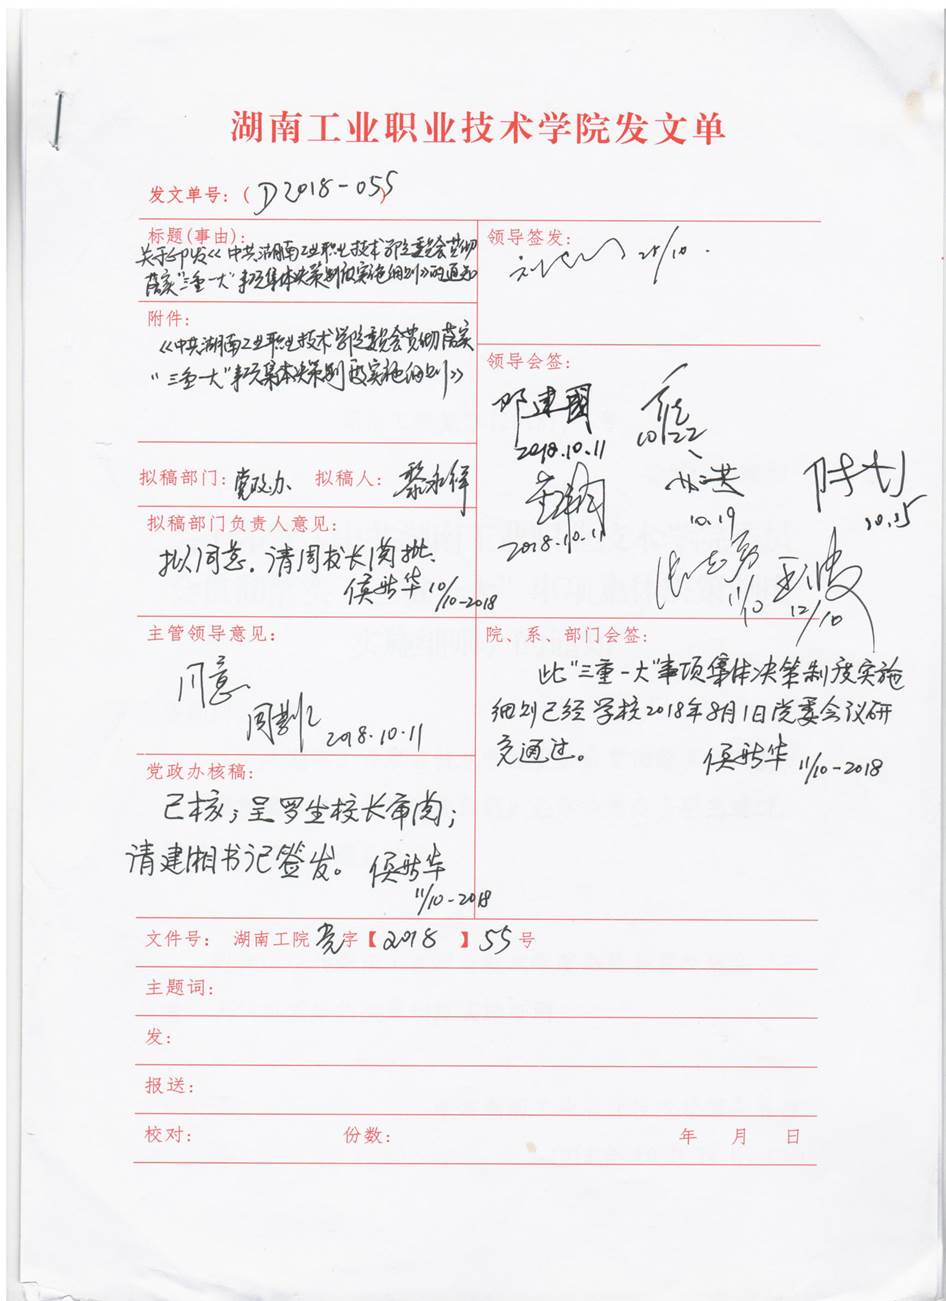 湖南工业职业技术学院发文单
发文单号：（D2018-055）
标题（事由）：
关于印发《中共湖南工业职业技术学院委员会贯彻
落实“三重一大”事项集体决策制度实施细则》的通知
附件：
《中共湖南工业职业技术学院委员会贯彻落实
“三重一大”事项集体决策制度实施细则》
拟稿部门：党政办 拟稿人：黎永祥
拟稿部门负责人意见：
拟同意，请周校长阅批。
10/10-2018
主管领导意见：
同意
2018.10.11
党政办核稿：
已核；呈罗生校长审阅；
请建湘书记签发。
11/10-2018
领导签发：
25/10.
领导会签：
邓建国
2018.10.11
10/22
2018.10.11
10.19
10.25
11/10
12/10
院、系、部门会签：
此“三重一大”事项集体决策制度实施
细则已经学校2018年8月1日党委会议研
究通过。
11/10-2018
文件号： 湖南工院党字【2018】55号
主题词：
发：
报送：
校对： 份数： 年 月 日